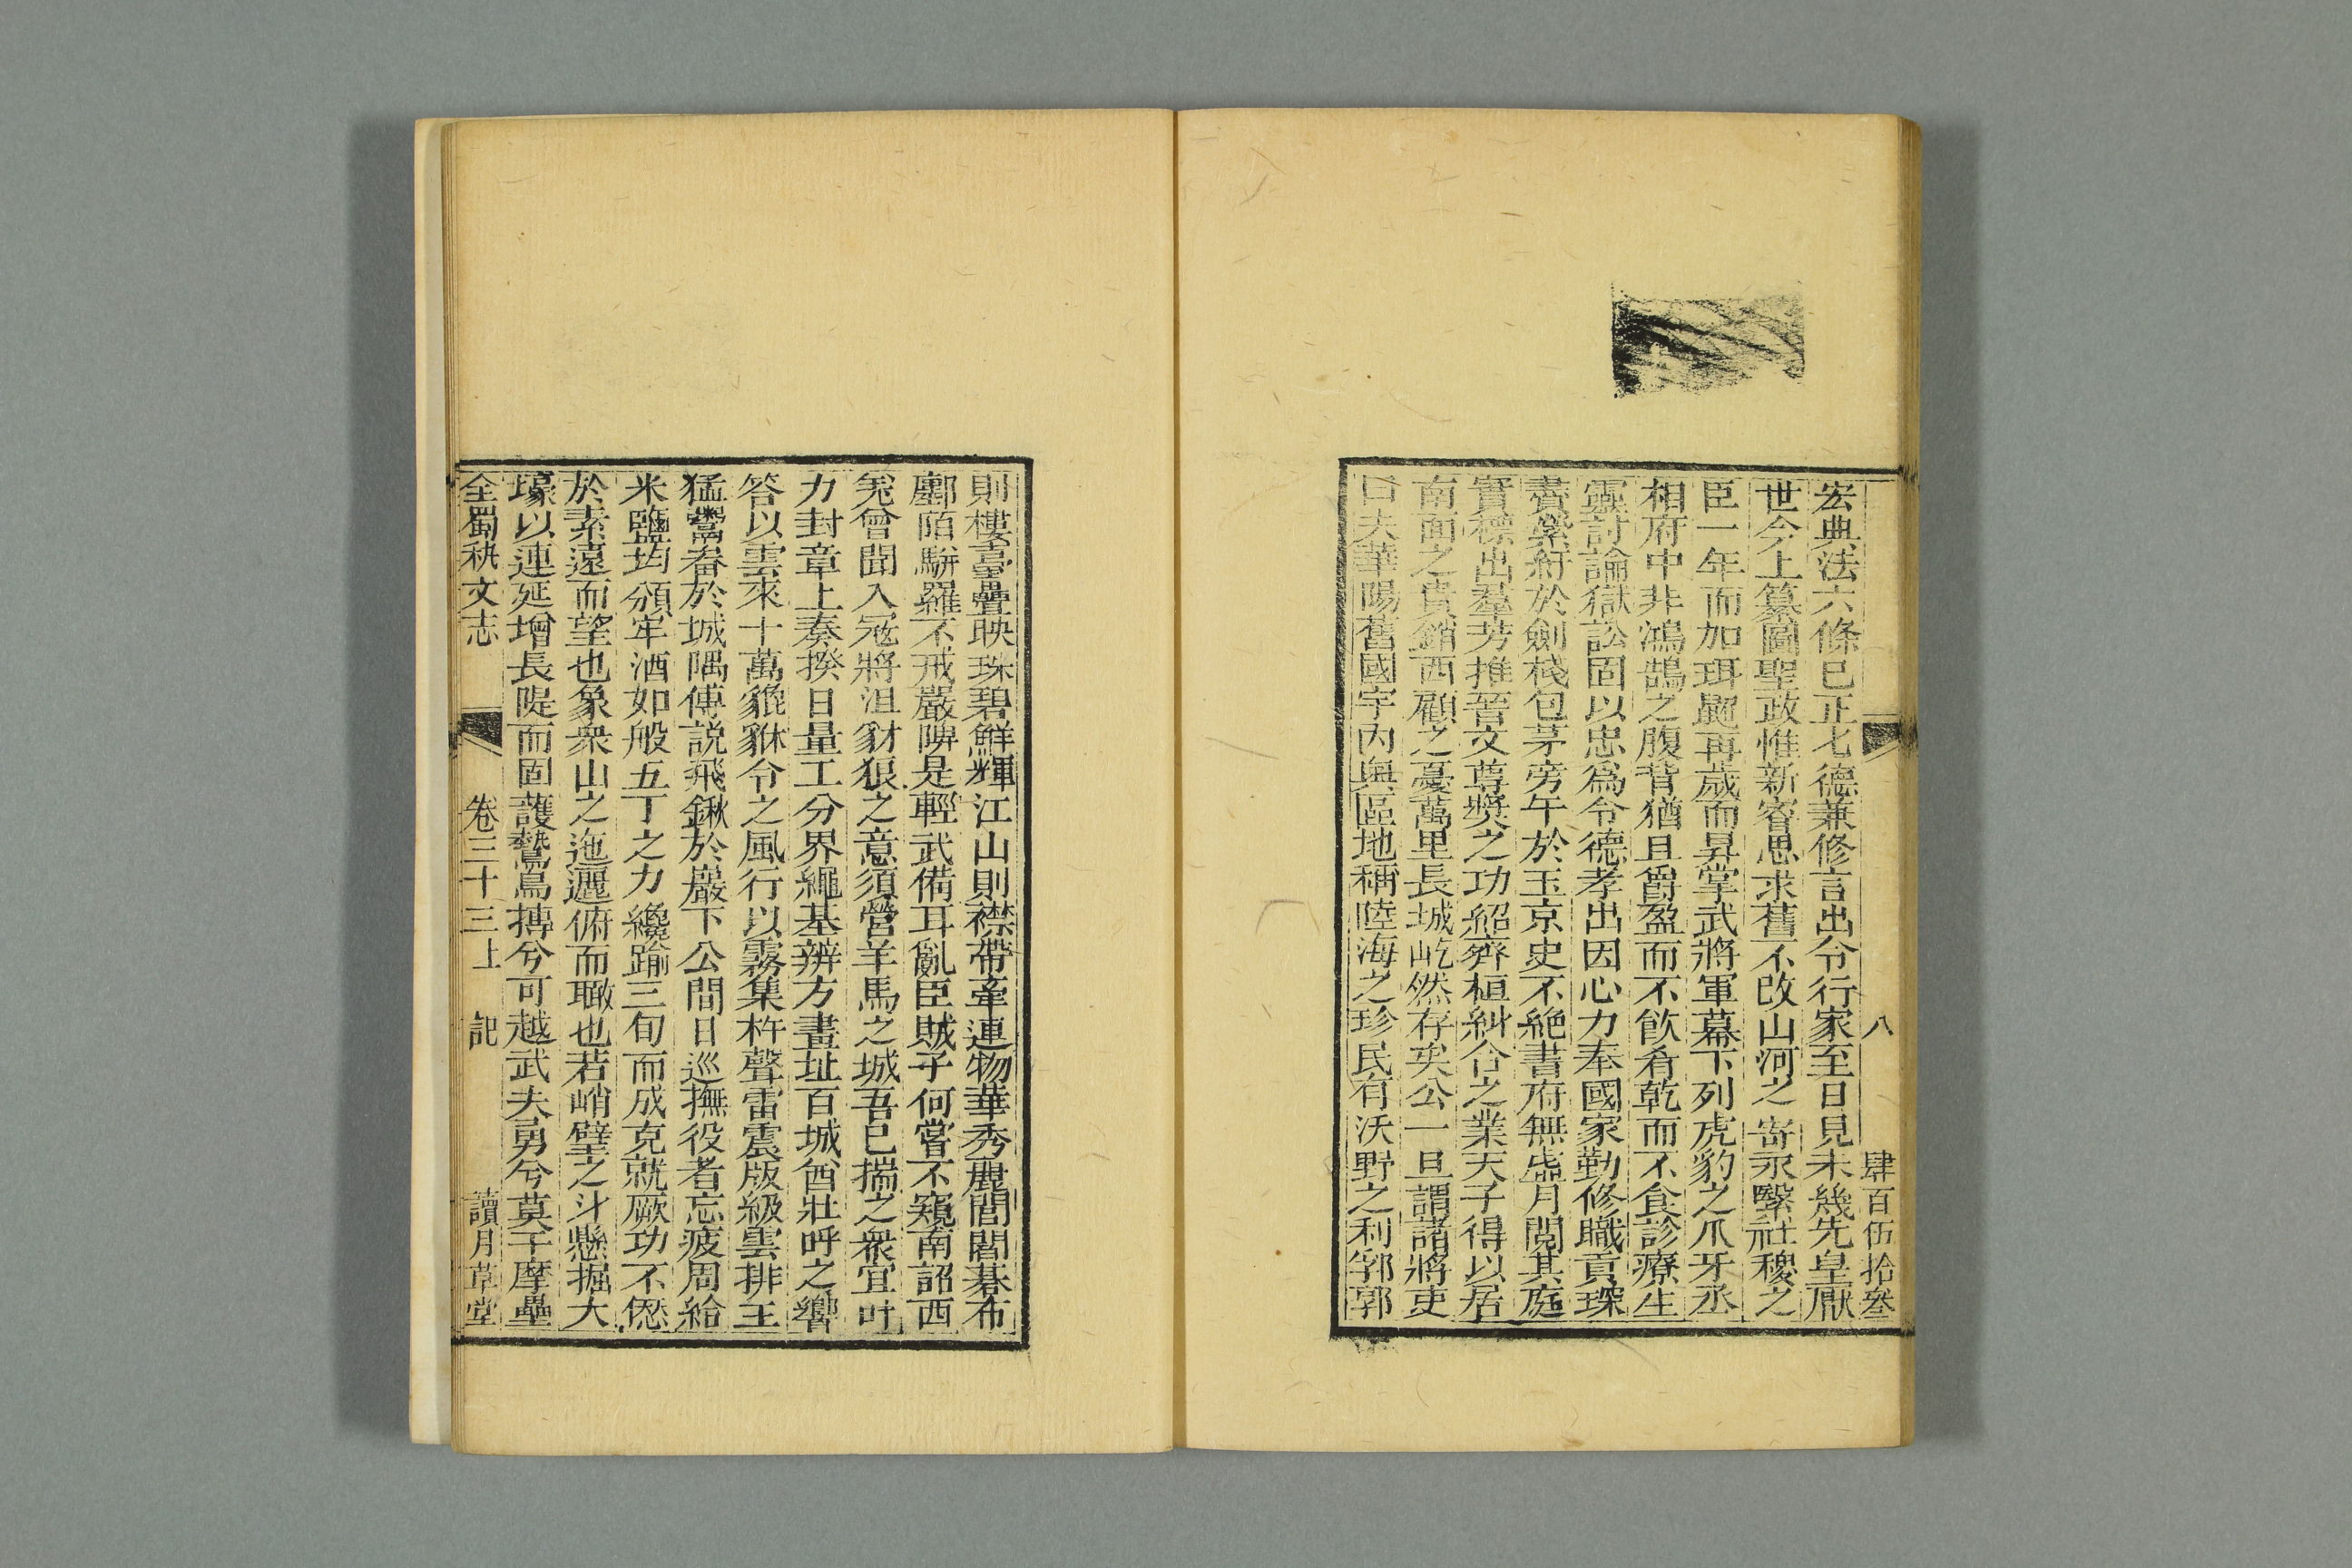 八　肆百伍拾叁
宏典法六條已正七德兼修言出令行家至日見未幾先皇厭
世今上纂圖聖政惟新睿思求舊不改山河之寄永繫社稷之
臣一年而加珥貂再歲而昇掌武將軍幕下列虎豹之爪牙丞
相府中非鴻鵠之腹背猶且爵盈而不飲肴乾而不食診療生
靈討論獄訟固以忠爲令德孝出因心力奉國家勤修職貢琛
賮縈紆於劍棧包茅旁午於玉京史不絶書府無虛月閱其庭
實標出羣芳推晉文尊奬之功紹齊桓糾合之業天子得以居
南面之貴銷西顧之憂萬里長城屹然存矣公一旦謂諸將吏
曰夫華陽舊國宇內奥區地稱陸海之珍民有沃野之利郛郭
則樓臺疊映珠碧鮮輝江山則襟帶牽連物華秀麗閭閻碁布
鄽陌駢羅不戒嚴陴是輕武備耳亂臣賊子何嘗不窺南詔西
羗曾聞入寇將沮豺狼之意須營羊馬之城吾已揣之衆宜叶
力封章上奏揆日量工分界繩基辨方畫址百城酋壯呼之響
答以雲來十萬貔貅令之風行以霧集杵聲雷震版級雲排王
猛鬻畚於城隅傅説飛鍬於巖下公間日巡撫役者忘疲周給
米鹽均頒牢酒如般五丁之力纔踰三旬而成克就厥功不愆
於素遠而望也象衆山之迤邐俯而瞰也若峭壁之斗懸掘大
壕以連延增長隄而固護鷙鳥摶兮可越武夫勇兮莫干摩壘
全蜀秇文志　卷三十三上　記　讀月草堂